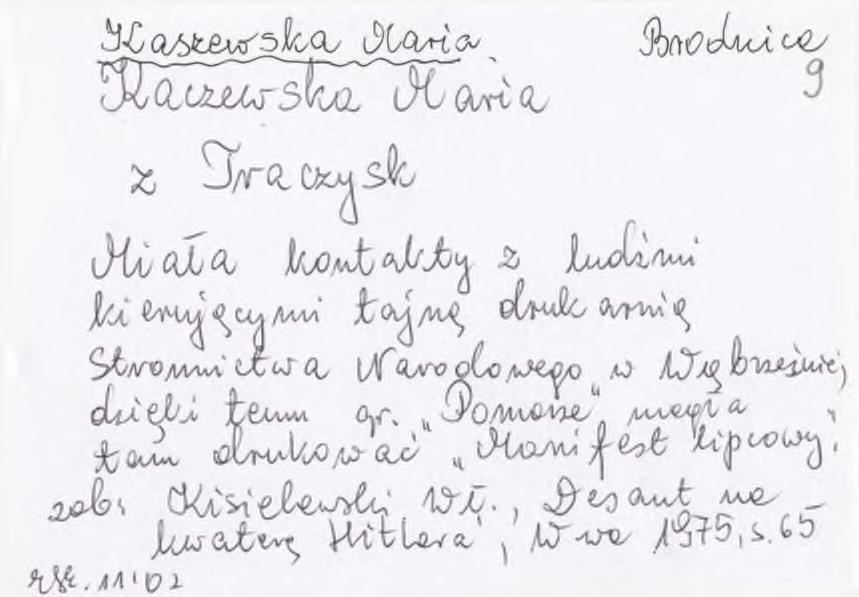 Kaszewska Maria. Brodnica
9
Kaczewska Maria
z Traczysk
Miała kontakty z ludźmi
kierującymi tajną drukarnią
Stronnictwa Narodowego w Wąbrzeźnie,
dzięki temu gr. "Pomorze" mogła
tam drukować "Manifest lipcowy".
zob: Kisielewski Wł., Desant na
kwaterę Hitlera", W-wa 1975, s. 65
11'02